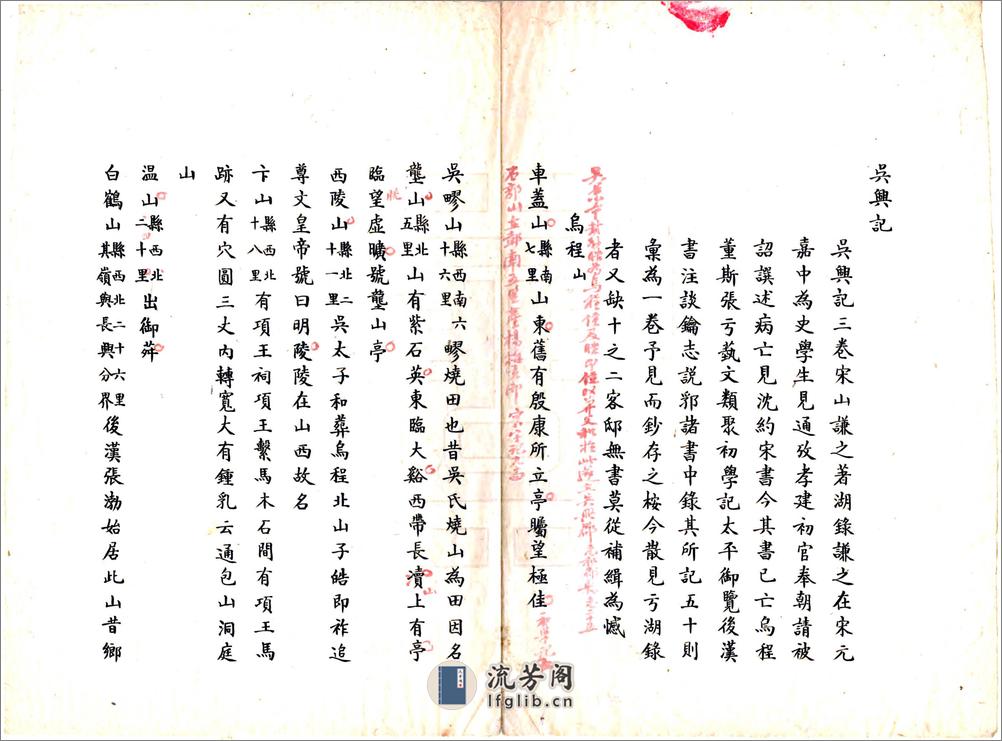 吳興記
吳興記三卷宋山謙之著湖錄謙之在宋元
嘉中為史學生見通攷孝建初官奉朝請被
詔譔述病亡見沈約宋書今其書已亡烏程
董斯張亏蓺文類聚初學記太平御覽後漢
書注談鑰志說郛諸書中錄其所記五十則
彙為一卷予見而鈔存之桉今散見亏湖錄
者又缺十之二客邸無書莫從補緝為憾
烏程山
車蓋山縣南七里山東舊有殷康所立亭矚望極佳
吳㟉山縣西南十六里六㟉燒田也昔吳氏燒山為田因名
壟山縣北五里山有紫石英東臨大谿西帶長瀆山上有亭
臨眺望虛曠號壟山亭
西陵山縣北二十一里吳太子和葬烏程北山子皓即祚追
尊文皇帝號曰明陵陵在山西故名
卞山縣西北十八里有項王祠項王繫馬木石間有項王馬
跡又有穴圓三丈內轉寬大有鍾乳云通包山洞庭
山
温山縣西北二十里出御荈
白鶴山縣西北二十六里其嶺與長興分界後漢張渤始居此山昔鄉
流芳阁
lfglib.cn